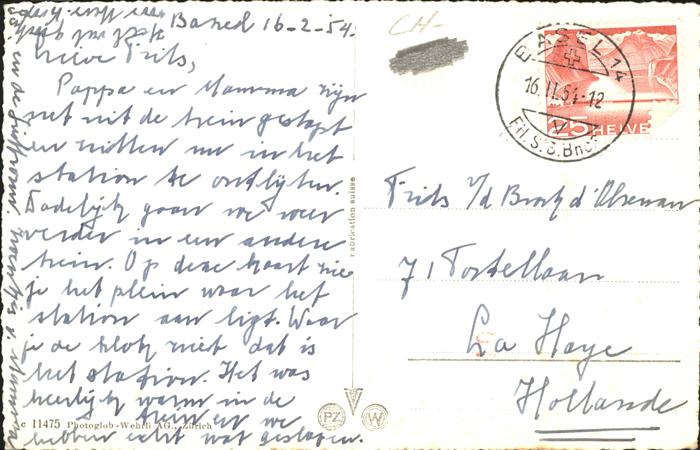 Bazel 16-2-'54.
Lieve Frits,
Pappa en Mamma zijn
net uit de trein gestapt
en zitten nu in het
station te ontbijten.
Dadelijk gaan we weer
verder in een andere
trein. Op deze kaart zie
je het plein waar het
station aan ligt. Waar
je de klok ziet dat is
het station. Het was
heerlijk warm in de
trein en we
hebben echt wat geslapen.
c 11475 Photoglob-Wehrli AG., Zürich
Fabrication suisse
PZ W
CH-
BASEL 14
16.II.54-12
V
25 HELVE
Frits v/d
71
La Haye
Hollande